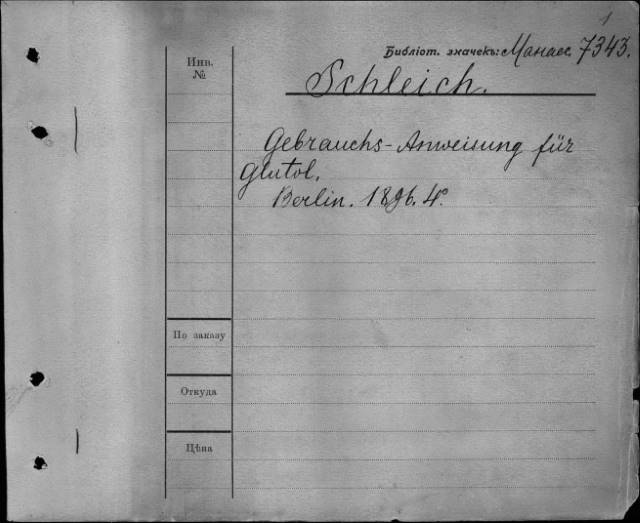 1
Библіот. значекъ: Манасс. 7343.
Инв.
№
Schleich.
Gebrauchs-Anweisung für
Glutol.
Berlin. 1896. 4°
По заказу
Откуда
Цѣна